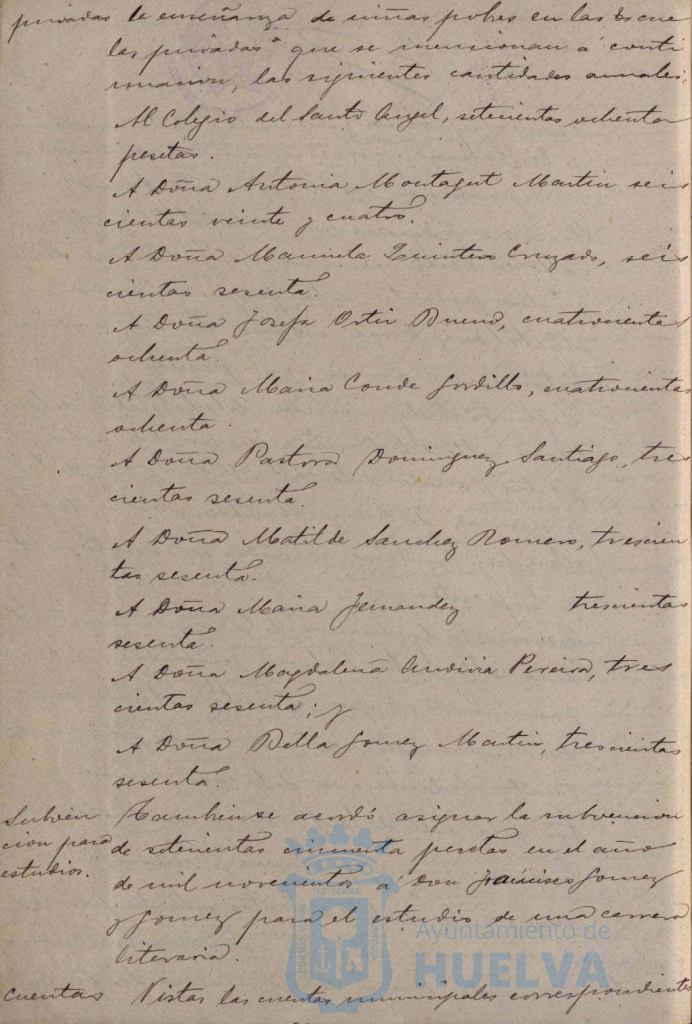 privadas la enseñanza de niñas pobres en las Escue
las privadas que se mencionan á conti
nuacion, las siguientes cantidades anuales:
Al Colegio del Santo Angel, setecientas ochenta
pesetas.
A Doña Antonia Montagut Martin seis
cientas veinte y cuatro.
A Doña Manuela Quintero Cruzado, seis
cientas sesenta.
A Doña Josefa Ortiz Bueno, cuatrocientas
ochenta.
A Doña Maria Conde Gordillo, cuatrocientas
ochenta.
A Doña Pastora Dominguez Santiago, tres
cientas sesenta.
A Doña Matilde Sanchez Romero, trescien
tas sesenta.
A Doña Maria Fernandez trescientas
sesenta.
A Doña Magdalena Andivia Pereira, tres
cientas sesenta; y
A Doña Bella Gomez Martin, trescientas
sesenta.
Subven
cion para
estudios.
Tambien se acordó asignar la subvencion
de setecientas cincuenta pesetas en el año
de mil novecientos á Don Francisco Gomez
y Gomez para el estudio de una carrera
literaria.
Cuentas
Vistas las cuentas municipales correspondientes
Ayuntamiento de
HUELVA